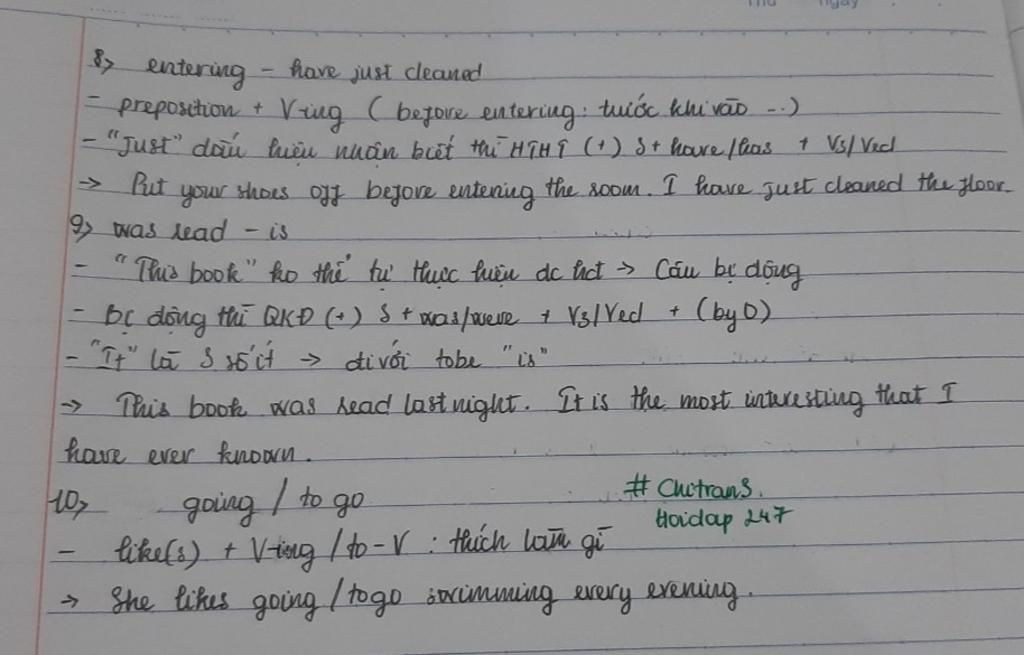 Thứ ngày
8> entering - have just cleaned
- preposition + V-ing ( before entering : trước khi vào ...)
- "Just" dấu hiệu nhận biết thì HTHT (+) S + have/has + V3/Ved
→ Put your shoes off before entering the room. I have just cleaned the floor.
9> was read - is
- "This book" ko thể tự thực hiện dc hđ → Câu bị động
- Bị động thì QKĐ (+) S + was/were + V3/Ved + (by O)
- "It" là S số ít → đi với tobe "is"
→ This book was read last night. It is the most interesting that I
have ever known.
10> going / to go
# Chitrans.
Hoidap 247
- like(s) + V-ing / to-V : thích làm gì
→ She likes going / to go swimming every evening.